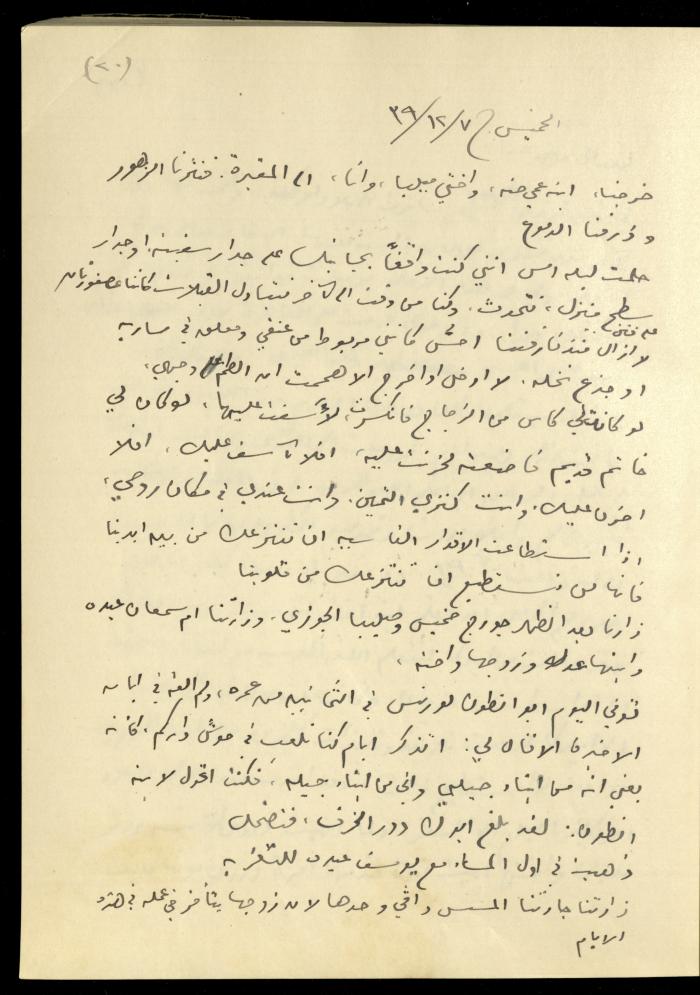 (٢٠)
الخميس في ٧/١٢/٣٩
خرجنا، ابنة عمي حنه، واختي ميليا، وانا، الى المقبرة. فنثرنا الزهور
وذرفنا الدموع
حلمت ليلة امس انني كنت واقفاً بجانبك على جدار سفينة او جدار
سطح منزل، نتحدث. وكنا من وقت الى آخر نتبادل القبلات كاننا عصفورتان
على غصن
لا ازال منذ فارقتنا احس كأنني مربوط من عنقي ومعلق في سارية
او جذع نخلة. لا ادخل او اخرج الا هممت ان الطم وجهي.
لو كانت لي كاس من الزجاج فانكسرت لأسفت عليها، لو كان لي
خاتم قديم فاضعته لحزنت عليه، افلا آسف عليك، افلا
احزن عليك، وانت كنزي الثمين. وانت عندي في مكان روحي،
اذا استطاعت الاقدار القاسية ان تنتزعك من بين ايدينا
فانها لن تستطيع ان تنتزعك من قلوبنا
زارنا بعد الظهر جورج خميس وحبيب الجوزي. وزارتنا ام سمعان عبده
وابنتها وزوجها واخته.
توفي اليوم ابو انطون لورنس في الثمانين من عمره، ولم القه في ايامه
الاخيرة الا قال لي: اتذكر ايام كنا نلعب في حوش داركم. كأنه
يعني انه من ابناء جيلي واني من ابناء جيله، فكنت اقول لابنه
انطون: لقد بلغ ابوك دور الخرف، فنضحك
ذهبت في اول المساء مع يوسف عبده للتعزية
زارتنا جارتنا المسس وحدها لان زوجها يتأخر في عمله في هذه
الايام